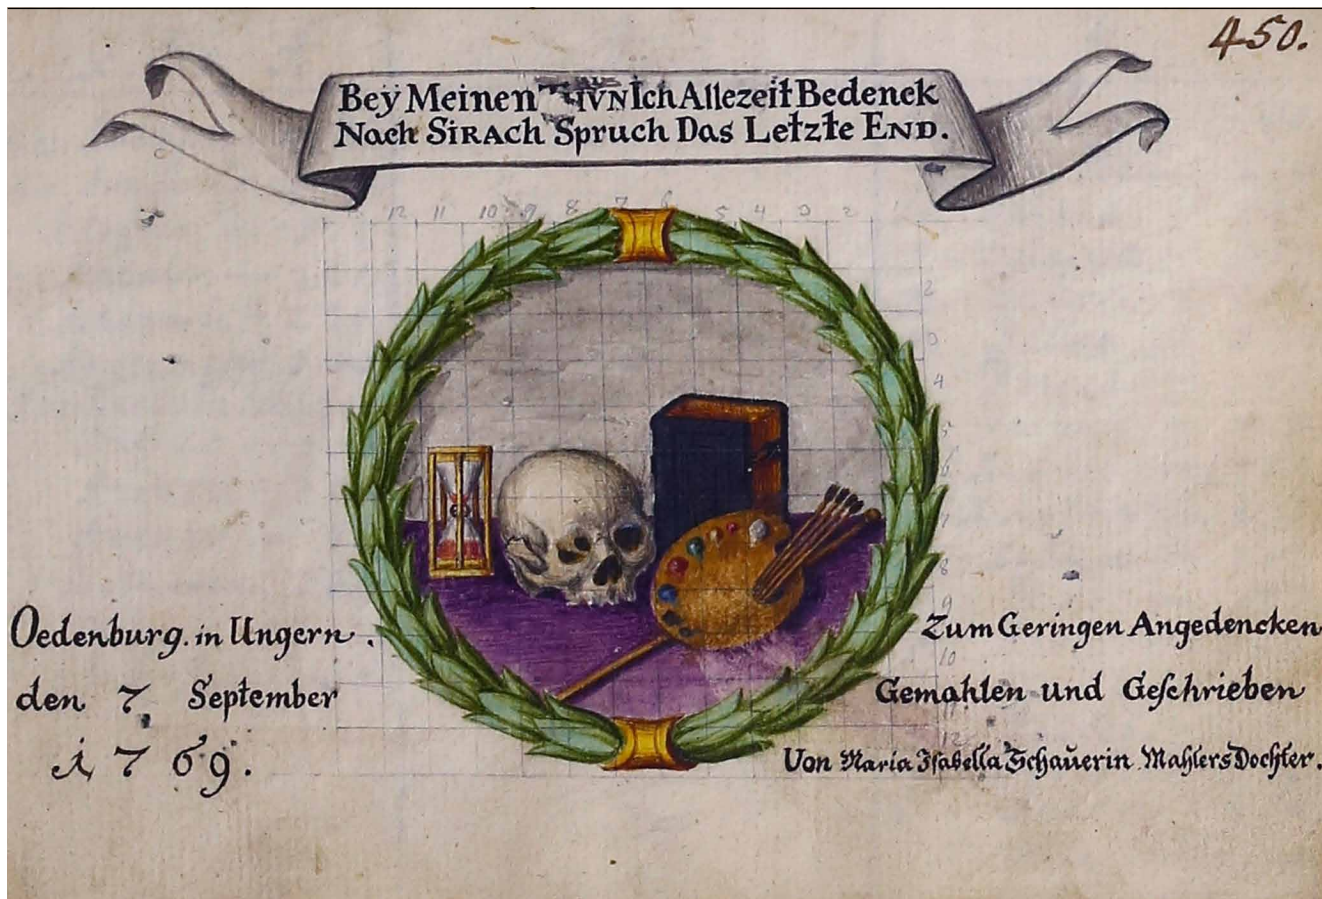 450.
Beÿ Meinen Ich Allezeit Bedenck
Nach SIRACH Spruch Das Letzte END.
12 11 10 9 8 7 6 5 4 3 2 1
2
3
4
5
6
7
8
9
10
11
12
Oedenburg. in Ungern.
den 7 September
1769.
Zum Geringen Angedencken
Gemahlen und Geschrieben
Von Maria Isabella Schauerin Mahlers Dochter.